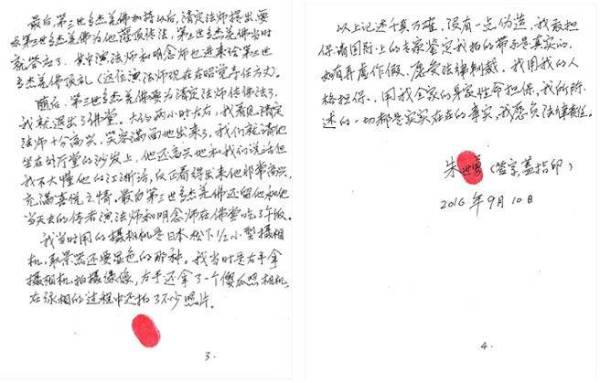 最后，第三世多杰羌佛加持以后，清定法师提出要
求第三世多杰羌佛为他灌顶传法，第三世多杰羌佛当时
就答应了。其中演法师和明念师也进来给第三世
多杰羌佛顶礼（这位演法师现在在昭觉寺任方丈）。
随后，第三世多杰羌佛要为清定法师传佛法了，
我就退出了佛堂。大约两小时左右，我看见清定
法师十分高兴，笑容满面地出来了，我们就请他
坐在外厅堂的沙发上，他还高兴地和我们说话但
我不大懂他的江浙话，反正看得出来他非常高兴，
充满喜悦之情，最后第三世多杰羌佛还留他和他
当天去的侍者演法师和明念师在佛堂吃了午饭。
我当时用的摄相机是日本松下1/2小型摄相
机，取景器还要显色的那种。我当时是右手拿
摄相机，拍摄像，左手还拿了一个傻瓜照相机，
在录相的过程中还拍了不少照片。
3.
以上记述千真万确，没有一点伪造，我敢担
保请国际上的专家鉴定我拍的带子是真实的，
如有弄虚作假，愿受法律制裁，我用我的人
格担保，用我全家的身家性命担保，我的所
述的一切都是实实在在的事实，我愿负法律责任。
朱世勇（签字盖指印）
2016年9月10日
4.